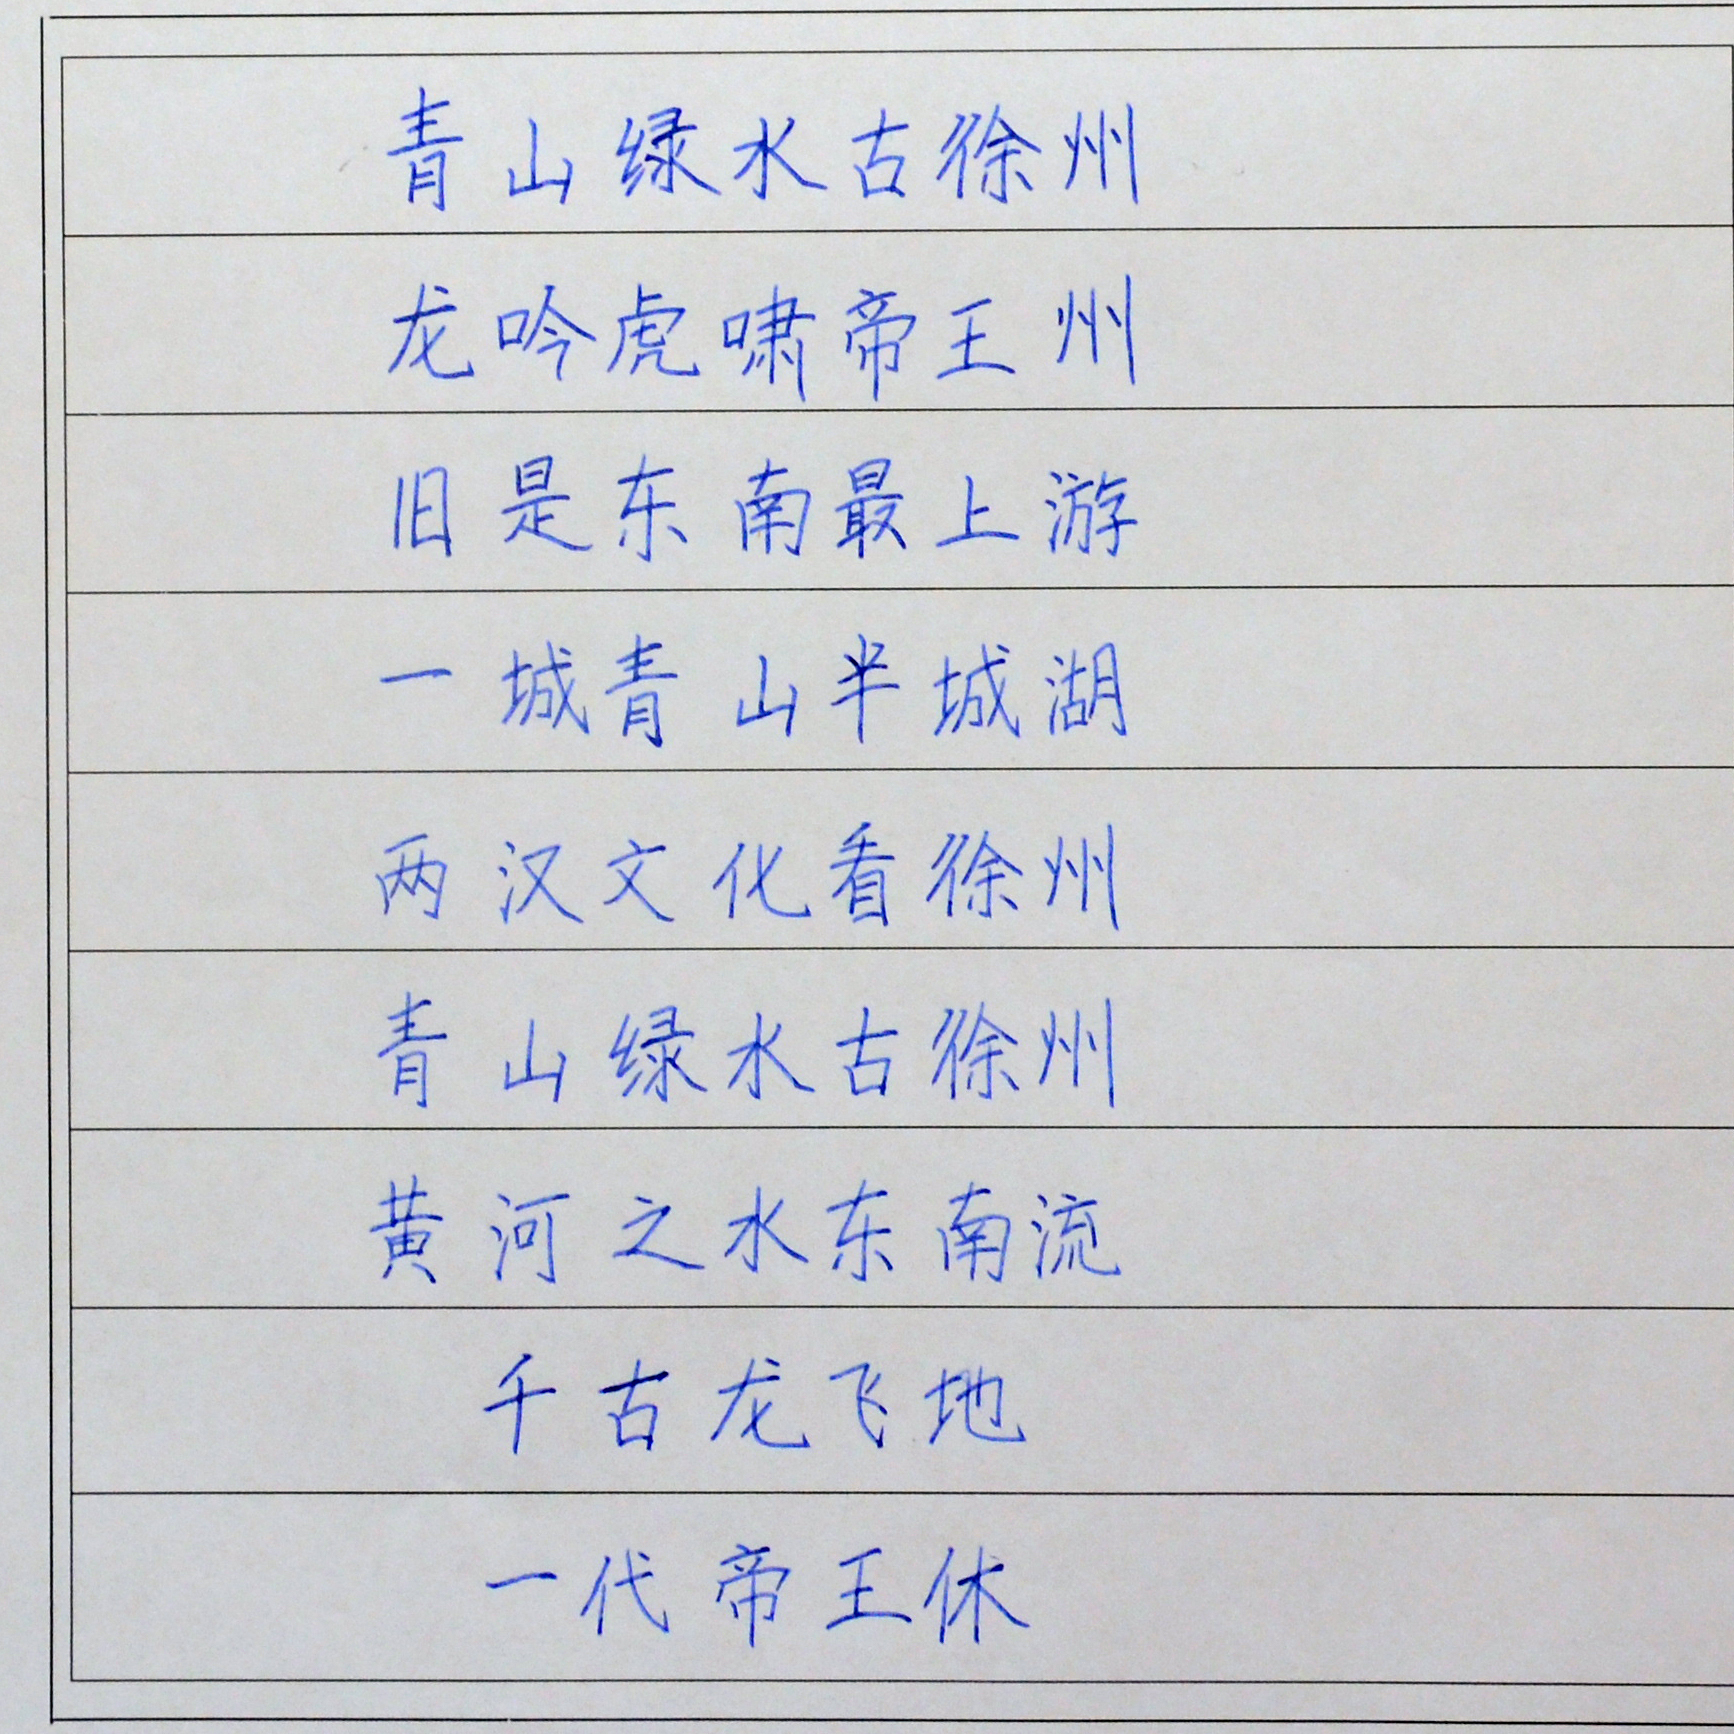 青山绿水古徐州
龙吟虎啸帝王州
旧是东南最上游
一城青山半城湖
两汉文化看徐州
青山绿水古徐州
黄河之水东南流
千古龙飞地
一代帝王休